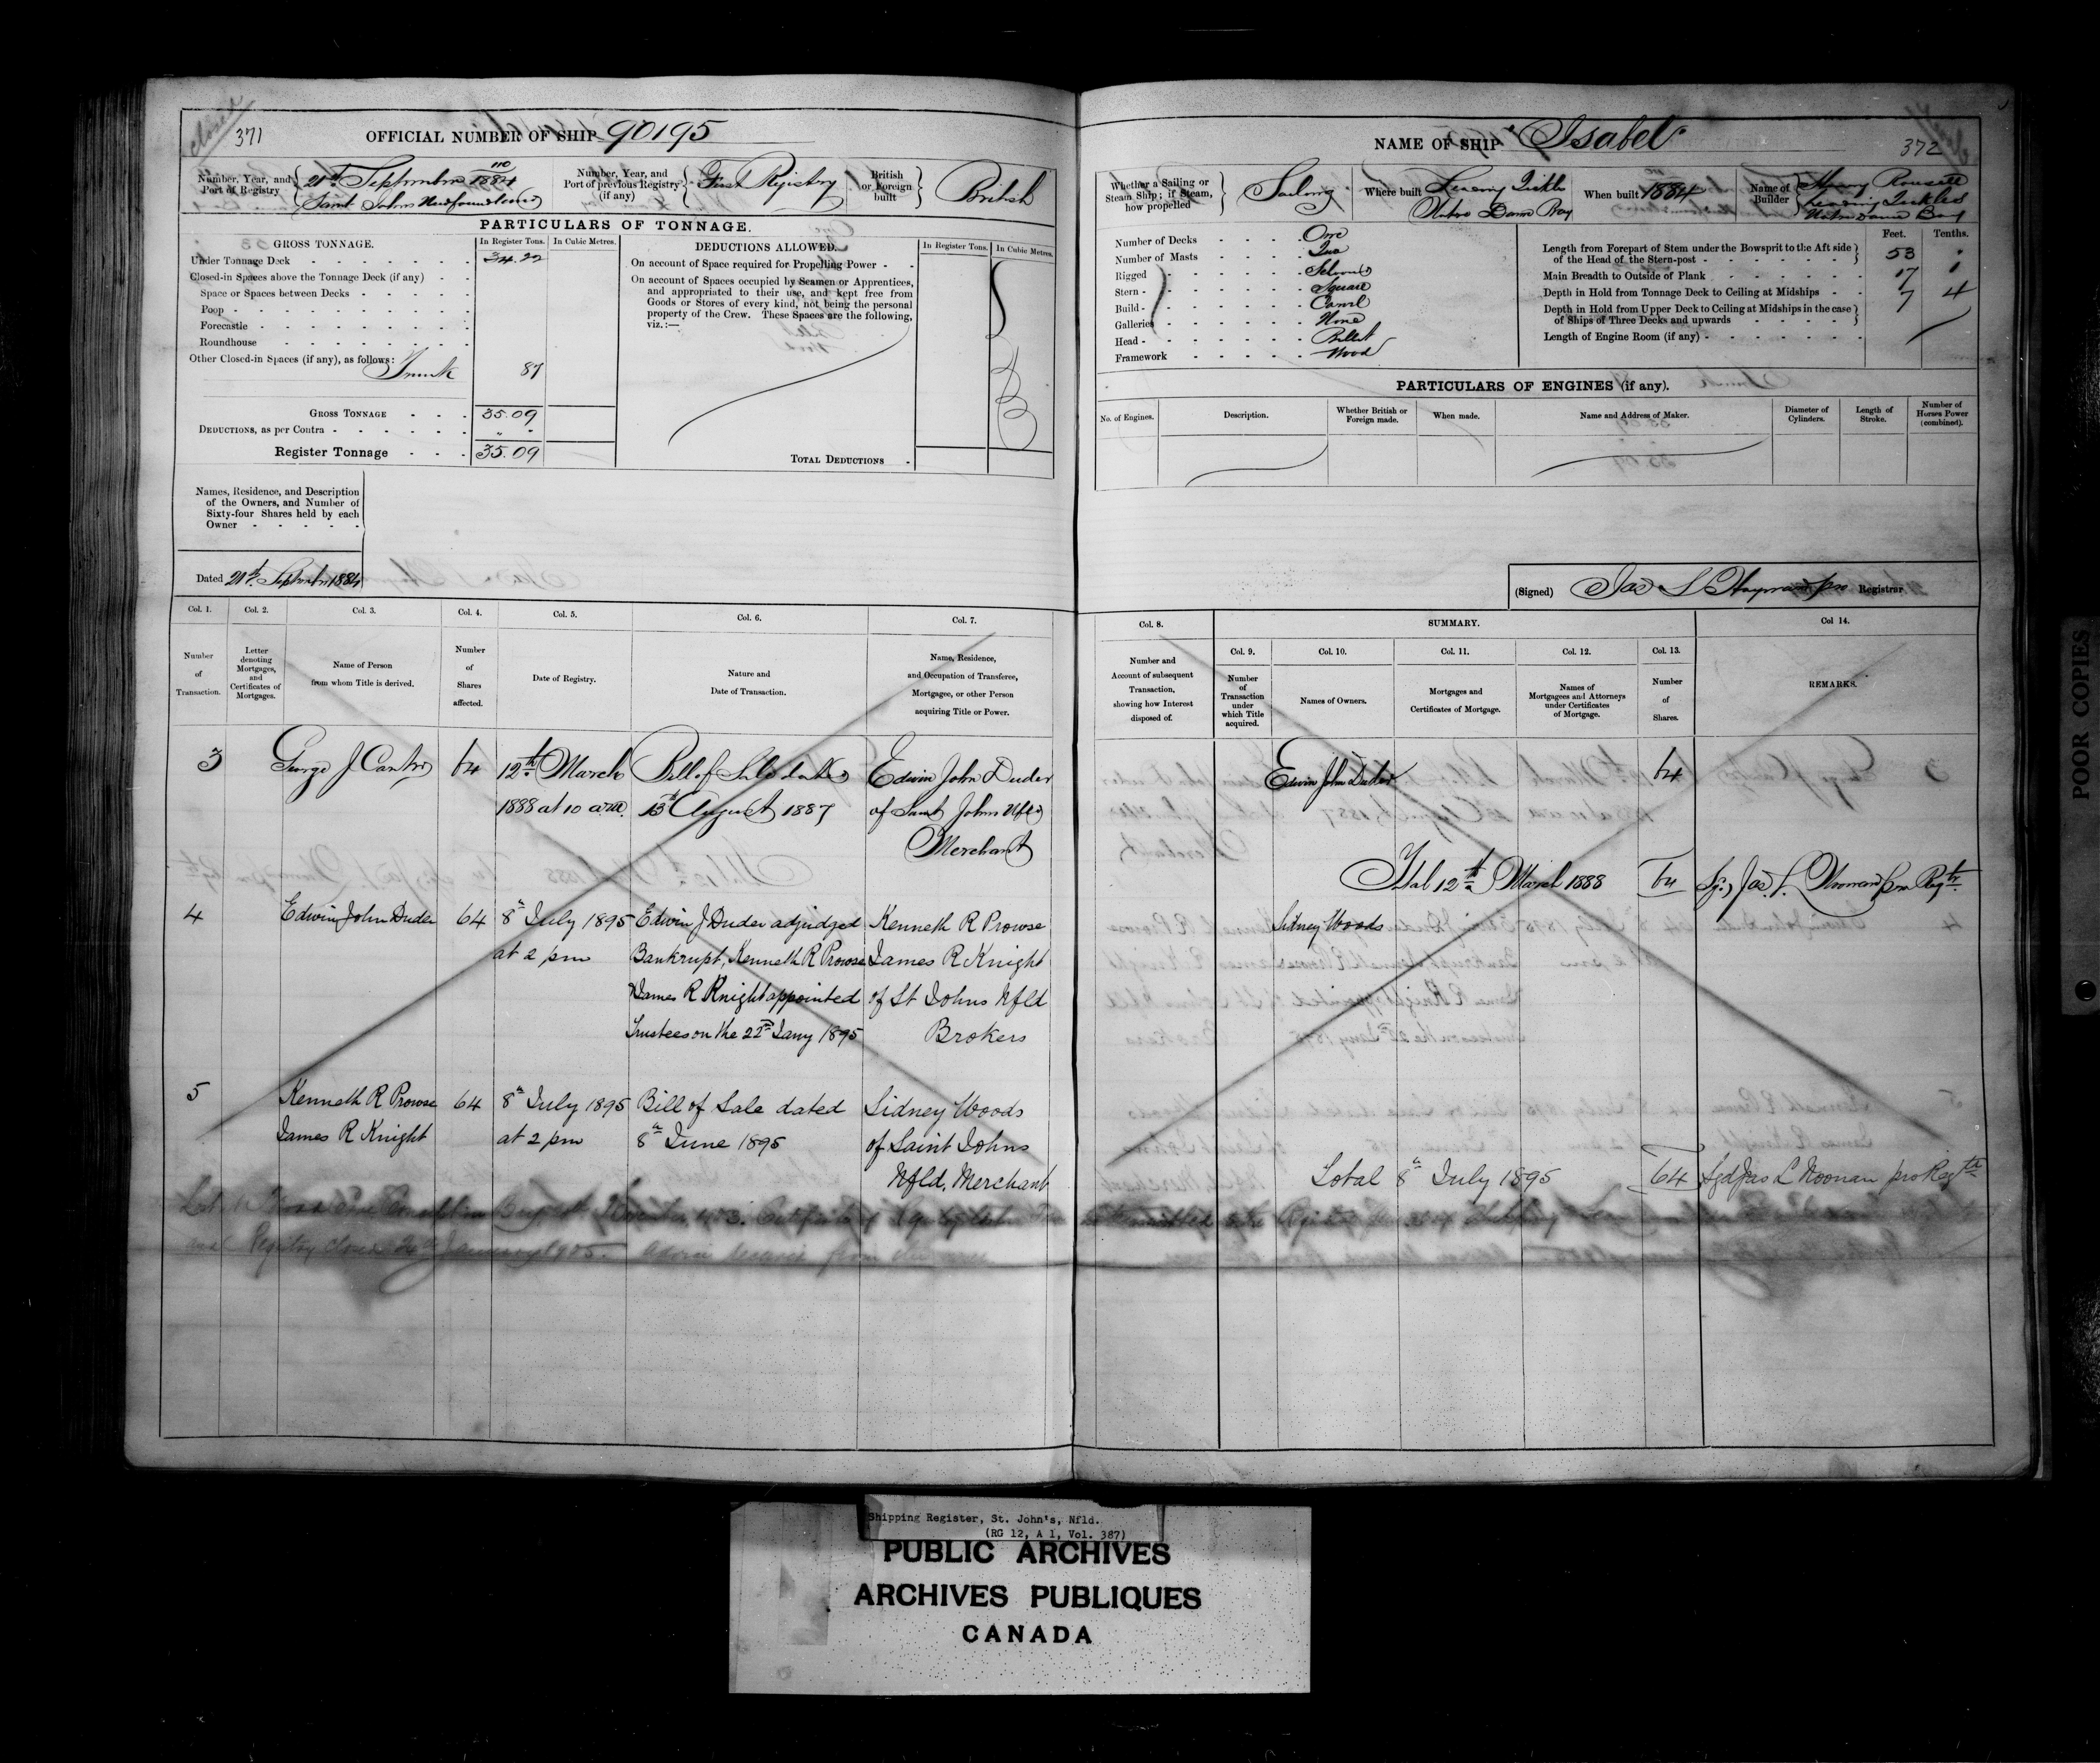 closed
371
OFFICIAL NUMBER OF SHIP 90195
Number, Year, and Port of Registry
110
21st September 1884
Saint Johns Newfoundland
Number, Year, and Port of previous Registry (if any)
First Registry
British or Foreign built
British
PARTICULARS OF TONNAGE.
GROSS TONNAGE.
In Register Tons.
In Cubic Metres.
Under Tonnage Deck 34.22
Closed-in Spaces above the Tonnage Deck (if any)
Space or Spaces between Decks
Poop
Forecastle
Roundhouse
Other Closed-in Spaces (if any), as follows:
Trunk 87
GROSS TONNAGE 35.09
DEDUCTIONS, as per Contra " "
Register Tonnage 35.09
DEDUCTIONS ALLOWED.
In Register Tons.
In Cubic Metres.
On account of Space required for Propelling Power
On account of Spaces occupied by Seamen or Apprentices,
and appropriated to their use, and kept free from
Goods or Stores of every kind, not being the personal
property of the Crew. These Spaces are the following,
viz.:—
TOTAL DEDUCTIONS
Names, Residence, and Description
of the Owners, and Number of
Sixty-four Shares held by each
Owner
Dated 21st September 1884
Col. 1. Col. 2. Col. 3. Col. 4. Col. 5. Col. 6. Col. 7.
Number of Transaction.
Letter denoting Mortgages, and Certificates of Mortgages.
Name of Person from whom Title is derived.
Number of Shares affected.
Date of Registry.
Nature and Date of Transaction.
Name, Residence, and Occupation of Transferee, Mortgagee, or other Person acquiring Title or Power.
3 George J Carter 64 12th March Bill of Sale dated Edwin John Duder
1888 at 10 am. 13th August 1887 of Saint Johns Nfld
Merchant
4 Edwin John Duder 64 8th July 1895 Edwin J Duder adjudged Kenneth R Prowse
at 2 pm Bankrupt, Kenneth R Prowse James R Knight
James R Knight appointed of St Johns Nfld
Trustees on the 22nd Jany 1895 Brokers
5 Kenneth R Prowse 64 8th July 1895 Bill of Sale dated Sidney Woods
James R Knight at 2 pm 8th June 1895 of Saint Johns
Nfld, Merchant
Registry closed 24th January 1905. Advice received from
NAME OF SHIP "Isabel"
372
Whether a Sailing or Steam Ship; if Steam, how propelled
Sailing
Where built
Leading Tickles
Notre Dame Bay
When built 1884
Name of Builder
Henry Rousell
Leading Tickles
Notre Dame Bay
Number of Decks One
Number of Masts Two
Rigged Schooner
Stern Square
Build Carvel
Galleries None
Head Billet
Framework Wood
Feet. Tenths.
Length from Forepart of Stem under the Bowsprit to the Aft side
of the Head of the Stern-post 53 .
Main Breadth to Outside of Plank 17 1
Depth in Hold from Tonnage Deck to Ceiling at Midships 7 4
Depth in Hold from Upper Deck to Ceiling at Midships in the case
of Ships of Three Decks and upwards
Length of Engine Room (if any)
PARTICULARS OF ENGINES (if any).
No. of Engines.
Description.
Whether British or Foreign made.
When made.
Name and Address of Maker.
Diameter of Cylinders.
Length of Stroke.
Number of Horses Power (combined).
(Signed) Registrar
Col. 8.
SUMMARY.
Col 14.
Col. 9. Col. 10. Col. 11. Col. 12. Col. 13.
Number and Account of subsequent Transaction, showing how Interest disposed of.
Number of Transaction under which Title acquired.
Names of Owners.
Mortgages and Certificates of Mortgage.
Names of Mortgagees and Attorneys under Certificates of Mortgage.
Number of Shares.
REMARKS.
Edwin John Duder 64
Total 12th March 1888 64 Sgd Jas L Noonan pro Regtr
Sidney Woods
Total 8th July 1895 64 Sgd Jas L Noonan pro Regtr
POOR COPIES
Shipping Register, St. John's, Nfld.
(RG 12, A 1, Vol. 387)
PUBLIC ARCHIVES
ARCHIVES PUBLIQUES
CANADA